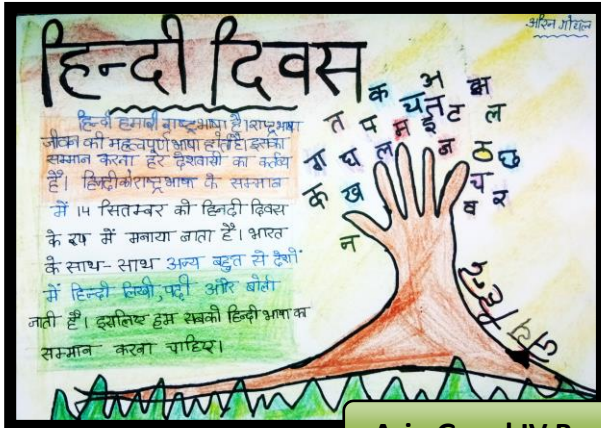 अरिन गोयल
हिन्दी दिवस
हिन्दी हमारी राष्ट्रभाषा है। राष्ट्रभाषा
जीवन की महत्वपूर्ण भाषा होती है। इसका
सम्मान करना हर देशवासी का कर्तव्य
है। हिन्दी को राष्ट्रभाषा के सम्मान
में 14 सितम्बर को हिन्दी दिवस
के रूप में मनाया जाता है। भारत
के साथ-साथ अन्य बहुत से देशों
में हिन्दी लिखी, पढ़ी और बोली
जाती है। इसलिए हम सबको हिन्दी भाषा का
सम्मान करना चाहिए।
क अ भ
त प म चत इ ट ल
ग घ ल न ठ छ
क ख च
ब र
न